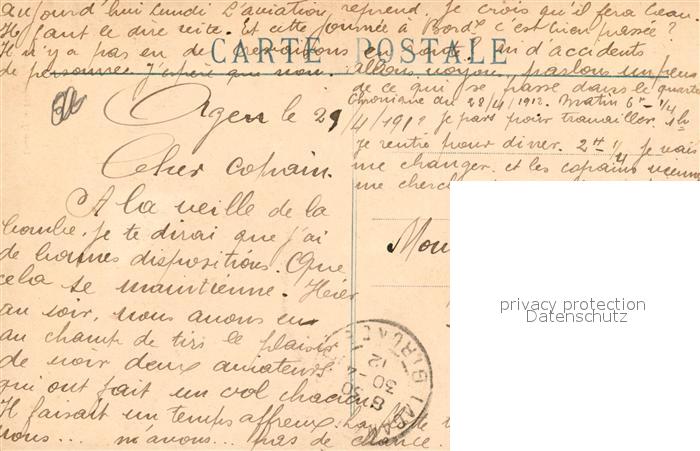 aujourd'hui lundi L'aviation reprend. Je crois qu'il fera beau.
Il faut le dire vite. Et cette journée à Bord. c'est bien passée ?
Il n'y a pas eu de
CARTE POSTALE
d'accidents
de personnes j'espère que non. Allons, voyons, parlons un peu
de ce qui se passe dans le quartie
Chronique du 28/4/1912. Matin 6h 1/4
Agen le 29/4/1912 je pars pour travailler. 11h
je rentre pour diner. 2h 1/4 je vais
Cher copain. me changer. et les copains vienne
me cherch
A la veille de la
bombe. Je te dirai que j'ai
de bonnes dispositions. Que
cela se maintienne. Hier
au soir, nous avons eu
au champ de tir le plaisir
de voir deux aviateurs
qui ont fait un vol chacun
Il faisait un temps affreux.
nous... n'avons... pas de chance.
Mon
30 -4
12
privacy protection
Datenschutz